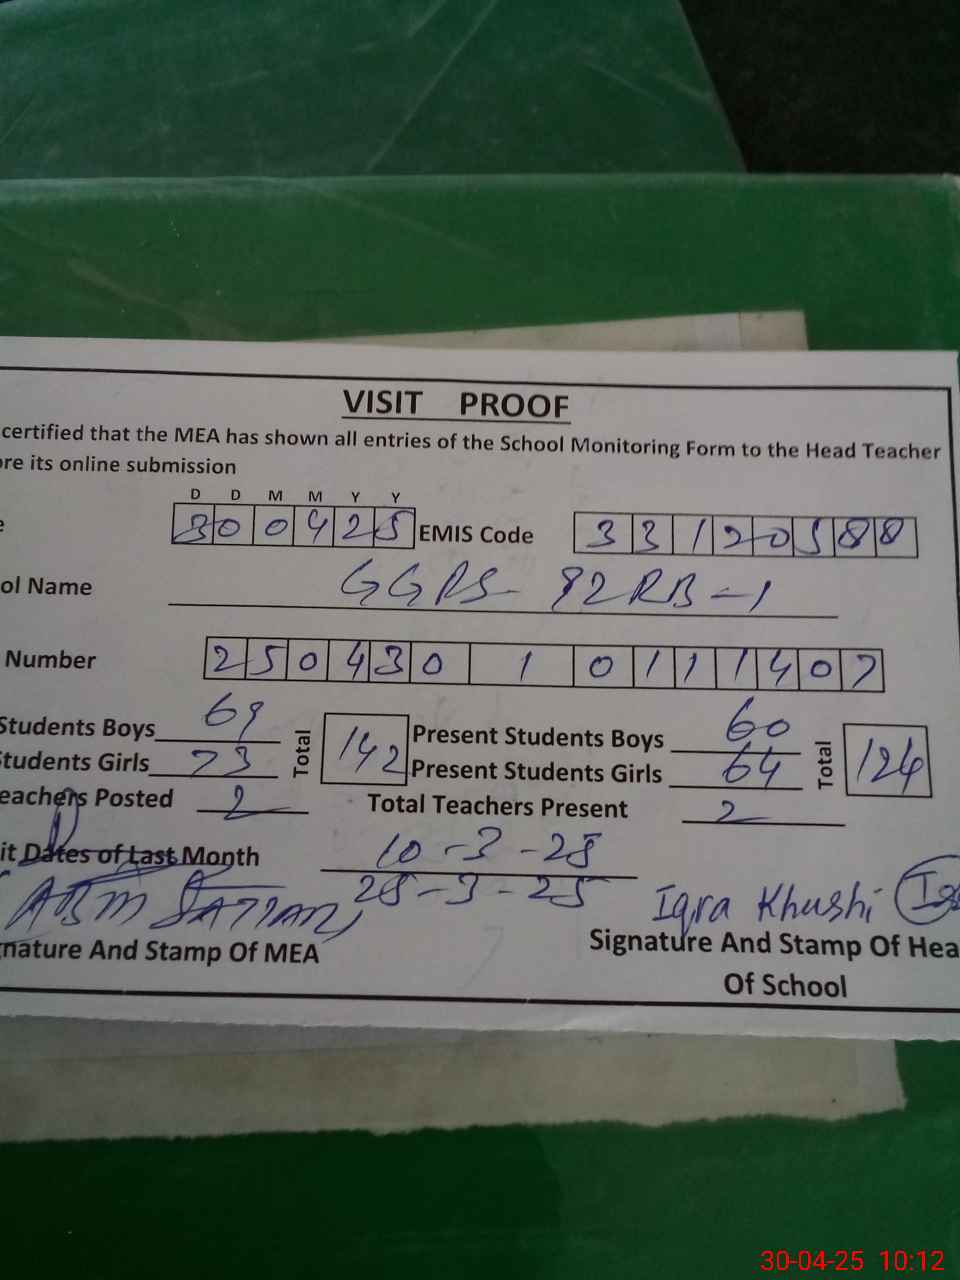 VISIT PROOF
certified that the MEA has shown all entries of the School Monitoring Form to the Head Teacher
ore its online submission
D D M M Y Y
e 300425 EMIS Code 33120588
ol Name GGPS- 82RB-1
Number 250430 1 0111407
Students Boys 69 Total 142 Present Students Boys 60 Total 124
tudents Girls 73 Present Students Girls 64
eachers Posted 2 Total Teachers Present 2
it Dates of Last Month 10-3-25
25-3-25
Iqra Khushi
nature And Stamp Of MEA Signature And Stamp Of Hea
Of School
30-04-25 10:12